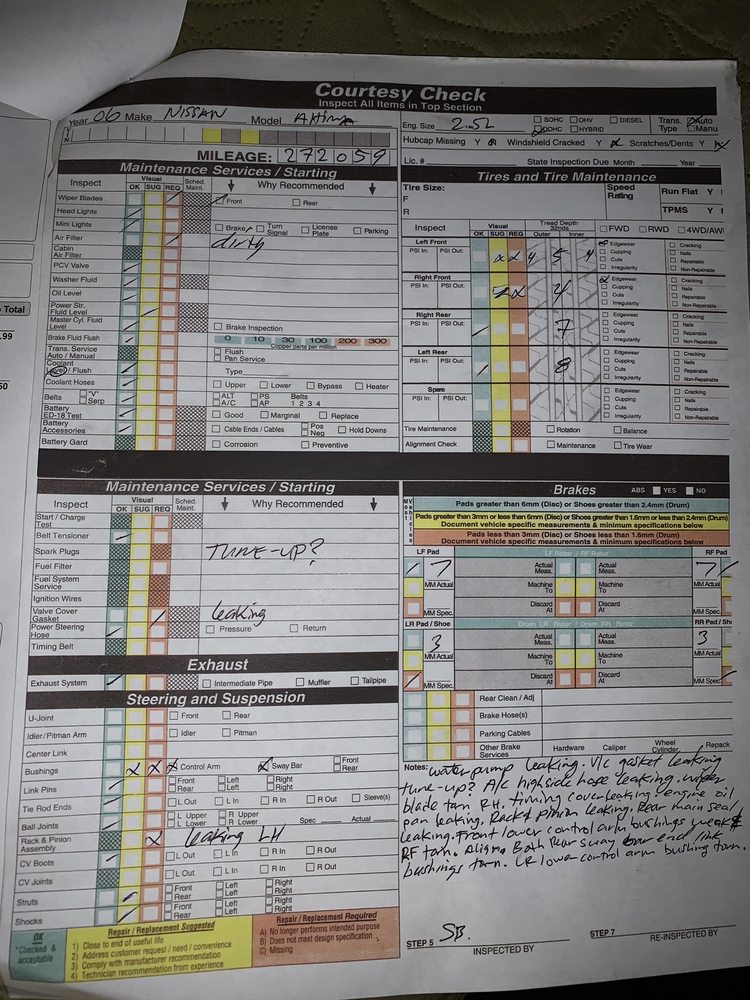 Courtesy Check
Inspect All Items in Top Section
Year 06 Make NISSAN Model Altima
VIN
MILEAGE: 272059
Eng. Size 2.5L SOHC OHV DIESEL Trans. Auto
DOHC HYBRID Type Manu
Hubcap Missing Y Windshield Cracked Y Scratches/Dents Y
Lic. # State Inspection Due Month Year
Maintenance Services / Starting
Inspect Visual OK SUG REQ Sched. Maint. Why Recommended
Wiper Blades Front Rear
Head Lights
Mini Lights Brake Turn Signal License Plate Parking
Air Filter dirty
Cabin Air Filter
PCV Valve
Washer Fluid
Oil Level
Power Str. Fluid Level
Master Cyl. Fluid Level Brake Inspection
Brake Fluid Flush 0 10 30 100 200 300
Copper parts per million
Trans. Service Auto / Manual Flush Pan Service
Coolant Level / Flush Type
Coolant Hoses Upper Lower Bypass Heater
Belts "V" Serp ALT A/C PS AP Belts 1 2 3 4
Battery ED-18 Test Good Marginal Replace
Battery Accessories Cable Ends / Cables Pos Neg Hold Downs
Battery Gard Corrosion Preventive
Tires and Tire Maintenance
Tire Size: Speed Rating Run Flat Y
F
R TPMS Y
Inspect Visual OK SUG REQ Tread Depth 32nds Outer Inner FWD RWD 4WD/AW
Left Front PSI In: PSI Out: x x 4 5 4 Edgewear Cupping Cuts Irregularity Cracking Nails Repairable Non-Repairable
Right Front PSI In: PSI Out: x 4 Edgewear Cupping Cuts Irregularity Cracking Nails Repairable Non-Repairable
Right Rear PSI In: PSI Out: 7 Edgewear Cupping Cuts Irregularity Cracking Nails Repairable Non-Repairable
Left Rear PSI In: PSI Out: 8 Edgewear Cupping Cuts Irregularity Cracking Nails Repairable Non-Repairable
Spare PSI In: PSI Out: Edgewear Cupping Cuts Irregularity Cracking Nails Repairable Non-Repairable
Tire Maintenance Rotation Balance
Alignment Check Maintenance Tire Wear
Maintenance Services / Starting
Inspect Visual OK SUG REQ Sched. Maint. Why Recommended
Start / Charge Test
Belt Tensioner
Spark Plugs TUNE-UP?
Fuel Filter
Fuel System Service
Ignition Wires
Valve Cover Gasket leaking
Power Steering Hose Pressure Return
Timing Belt
Exhaust
Exhaust System Intermediate Pipe Muffler Tailpipe
Steering and Suspension
U-Joint Front Rear
Idler/Pitman Arm Idler Pitman
Center Link
Bushings x x x Control Arm Sway Bar Front Rear
Link Pins Front Rear Left Left Right Right
Tie Rod Ends L Out L In R Out R In Sleeve(s)
Ball Joints L Upper L Lower R Upper R Lower Spec Actual
Rack & Pinion Assembly x leaking LH
CV Boots L Out L In R In R Out
CV Joints L Out L In R In R Out
Struts Front Rear Left Left Right Right
Shocks Front Rear Left Left Right Right
OK
*Checked & acceptable
Repair / Replacement Suggested
1) Close to end of useful life
2) Address customer request / need / convenience
3) Comply with manufacturer recommendation
4) Technician recommendation from experience
Repair / Replacement Required
A) No longer performs intended purpose
B) Does not meet design specification
C) Missing
Brakes ABS YES NO
Pads greater than 6mm (Disc) or Shoes greater than 2.4mm (Drum)
Pads greater than 3mm or less than 6mm (Disc) or Shoes greater than 1.6mm or less than 2.4mm (Drum)
Document vehicle specific measurements & minimum specifications below
Pads less than 3mm (Disc) or Shoes less than 1.6mm (Drum)
Document vehicle specific measurements & minimum specifications below
LF Pad LF Rotor / RF Rotor RF Pad
7 Actual Meas. Actual Meas. 7
MM Actual Machine To Machine To MM Actual
MM Spec. Discard At Discard At MM Spec.
LR Pad / Shoe Drum LR Rotor / Drum RR Rotor RR Pad / Shoe
3 Actual Meas. Actual Meas. 3
MM Actual Machine To Machine To MM Actual
MM Spec. Discard At Discard At MM Spec.
Rear Clean / Adj
Brake Hose(s)
Parking Cables
Other Brake Services Hardware Caliper Wheel Cylinder Repack
Notes: water pump leaking. V/C gasket leaking
tune-up? A/C highside hose leaking. wiper
blade torn RH. timing cover leaking engine oil
pan leaking. Rack & pinion leaking. Rear main seal
leaking. Front lower control arm bushings weak &
RF torn. Align. Both Rear sway bar end link
bushings torn. LR lower control arm bushing torn.
STEP 5 SB. INSPECTED BY STEP 7 RE-INSPECTED BY
Total
.99
50